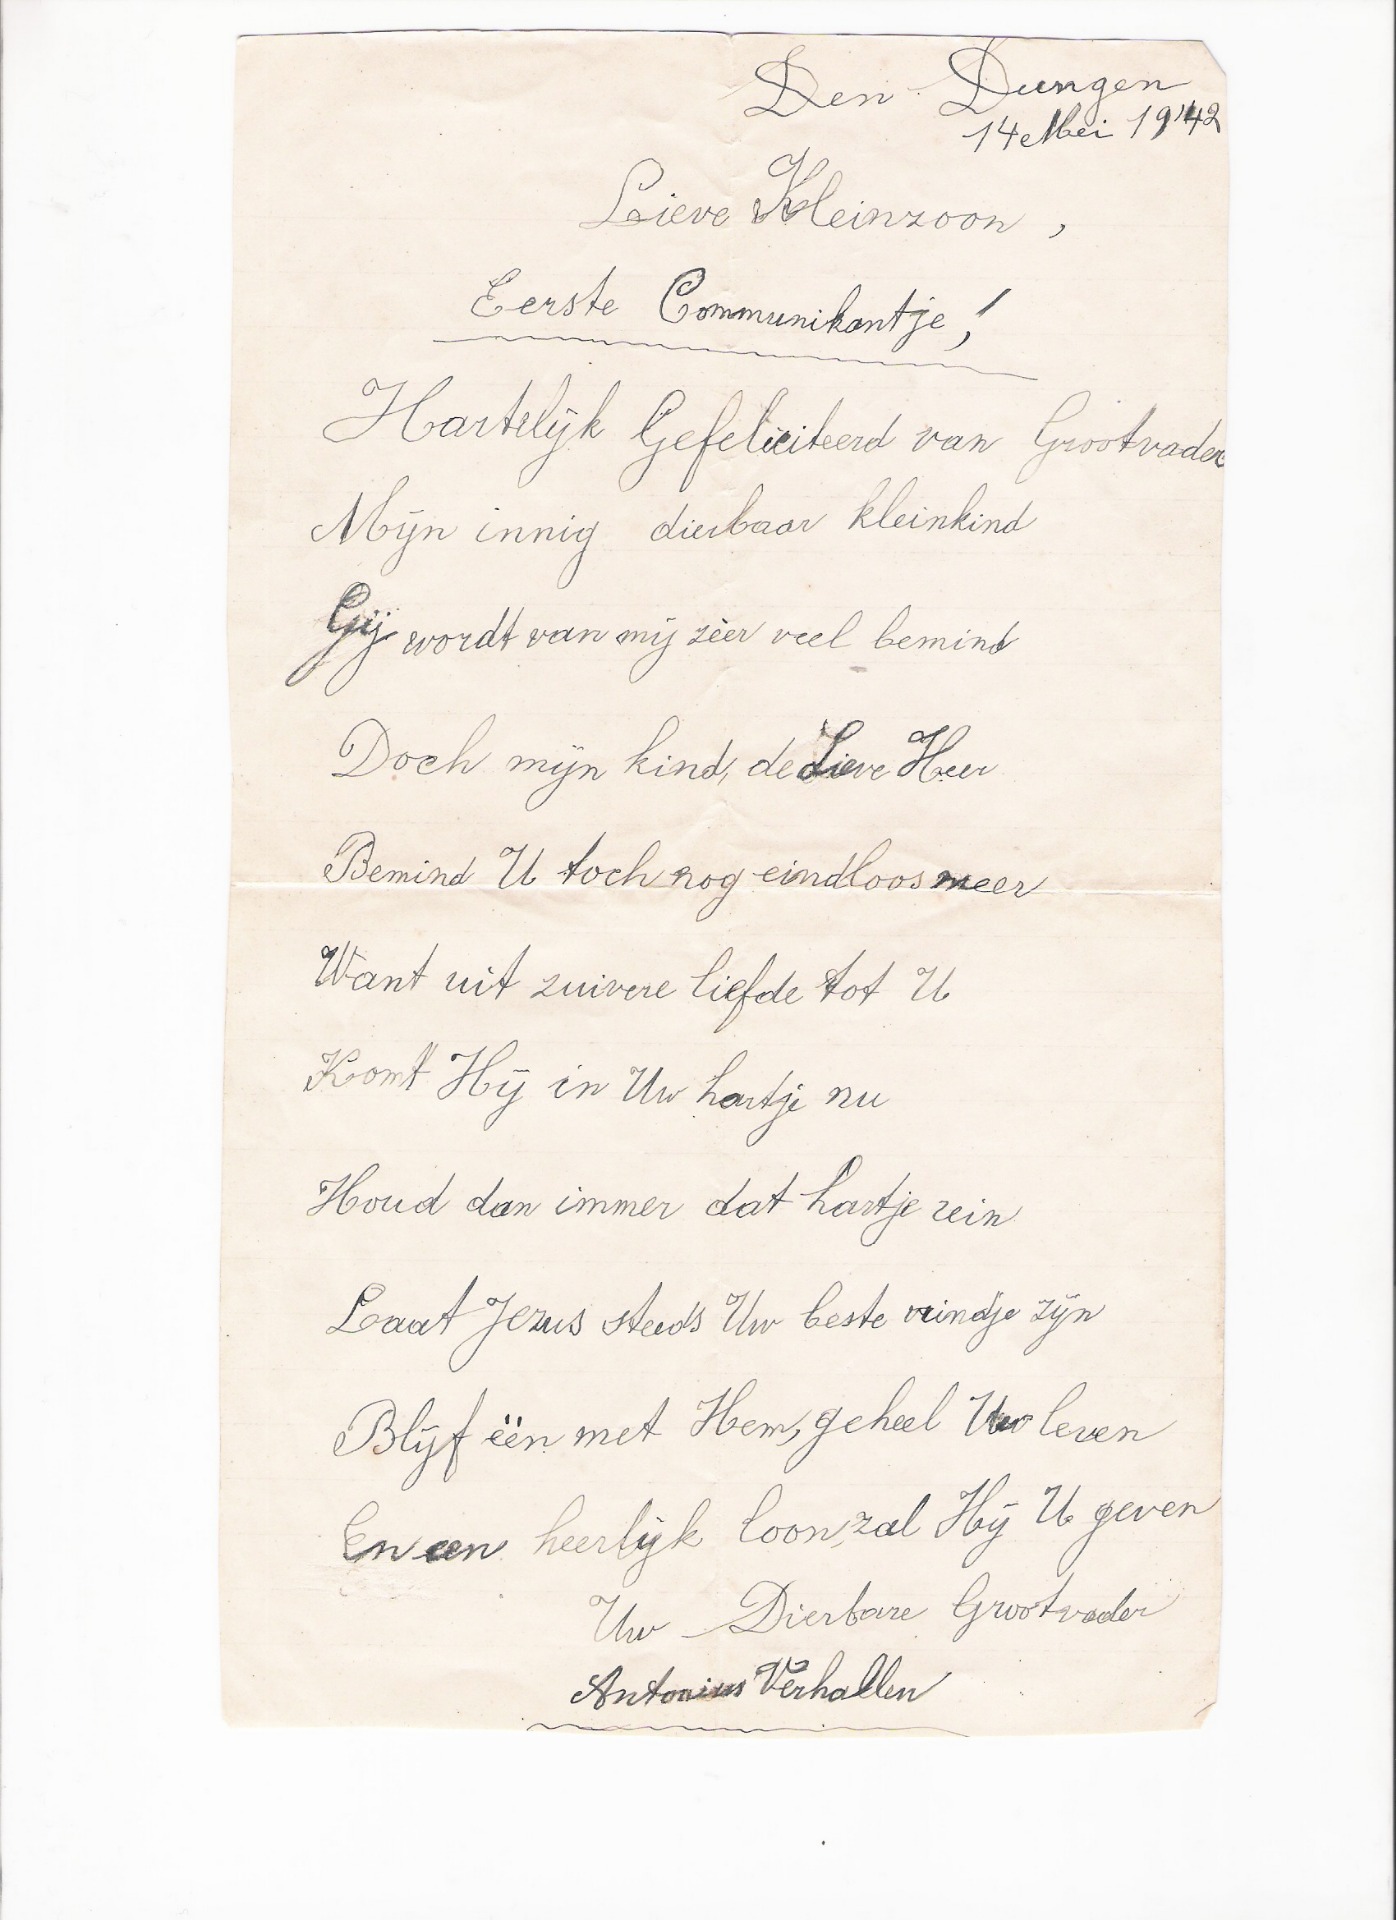 Den Dungen
14 Mei 1942
Lieve Kleinzoon,
Eerste Communikantje!
Hartelijk Gefeliciteerd van Grootvader
Mijn innig dierbaar kleinkind
Gij wordt van mij zéér veel bemind
Doch mijn kind, de Lieve Heer
Bemind U toch nog eindloos meer
Want uit zuivere liefde tot U
Komt Hij in Uw hartje nu
Houd dan immer dat hartje rein
Laat Jezus steeds Uw beste vrindje zijn
Blijf één met Hem, geheel Uw leven
En een heerlijk loon, zal Hij U geven
Uw Dierbare Grootvader
Antonius Verhallen